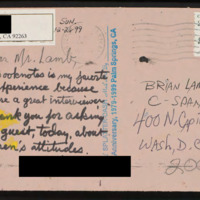 , CA 92263
SUN.
12-26-99
Dear Mr. Lamb,
Booknotes is my favorite
experience because
are a great interviewer
Thank you for asking
guest, today, about
men's attitudes.
Anniversary, 1979-1999 Palm Springs, CA
BRIAN LAM
C-SPAN
400 N. Capit
WASH, D.C.
200